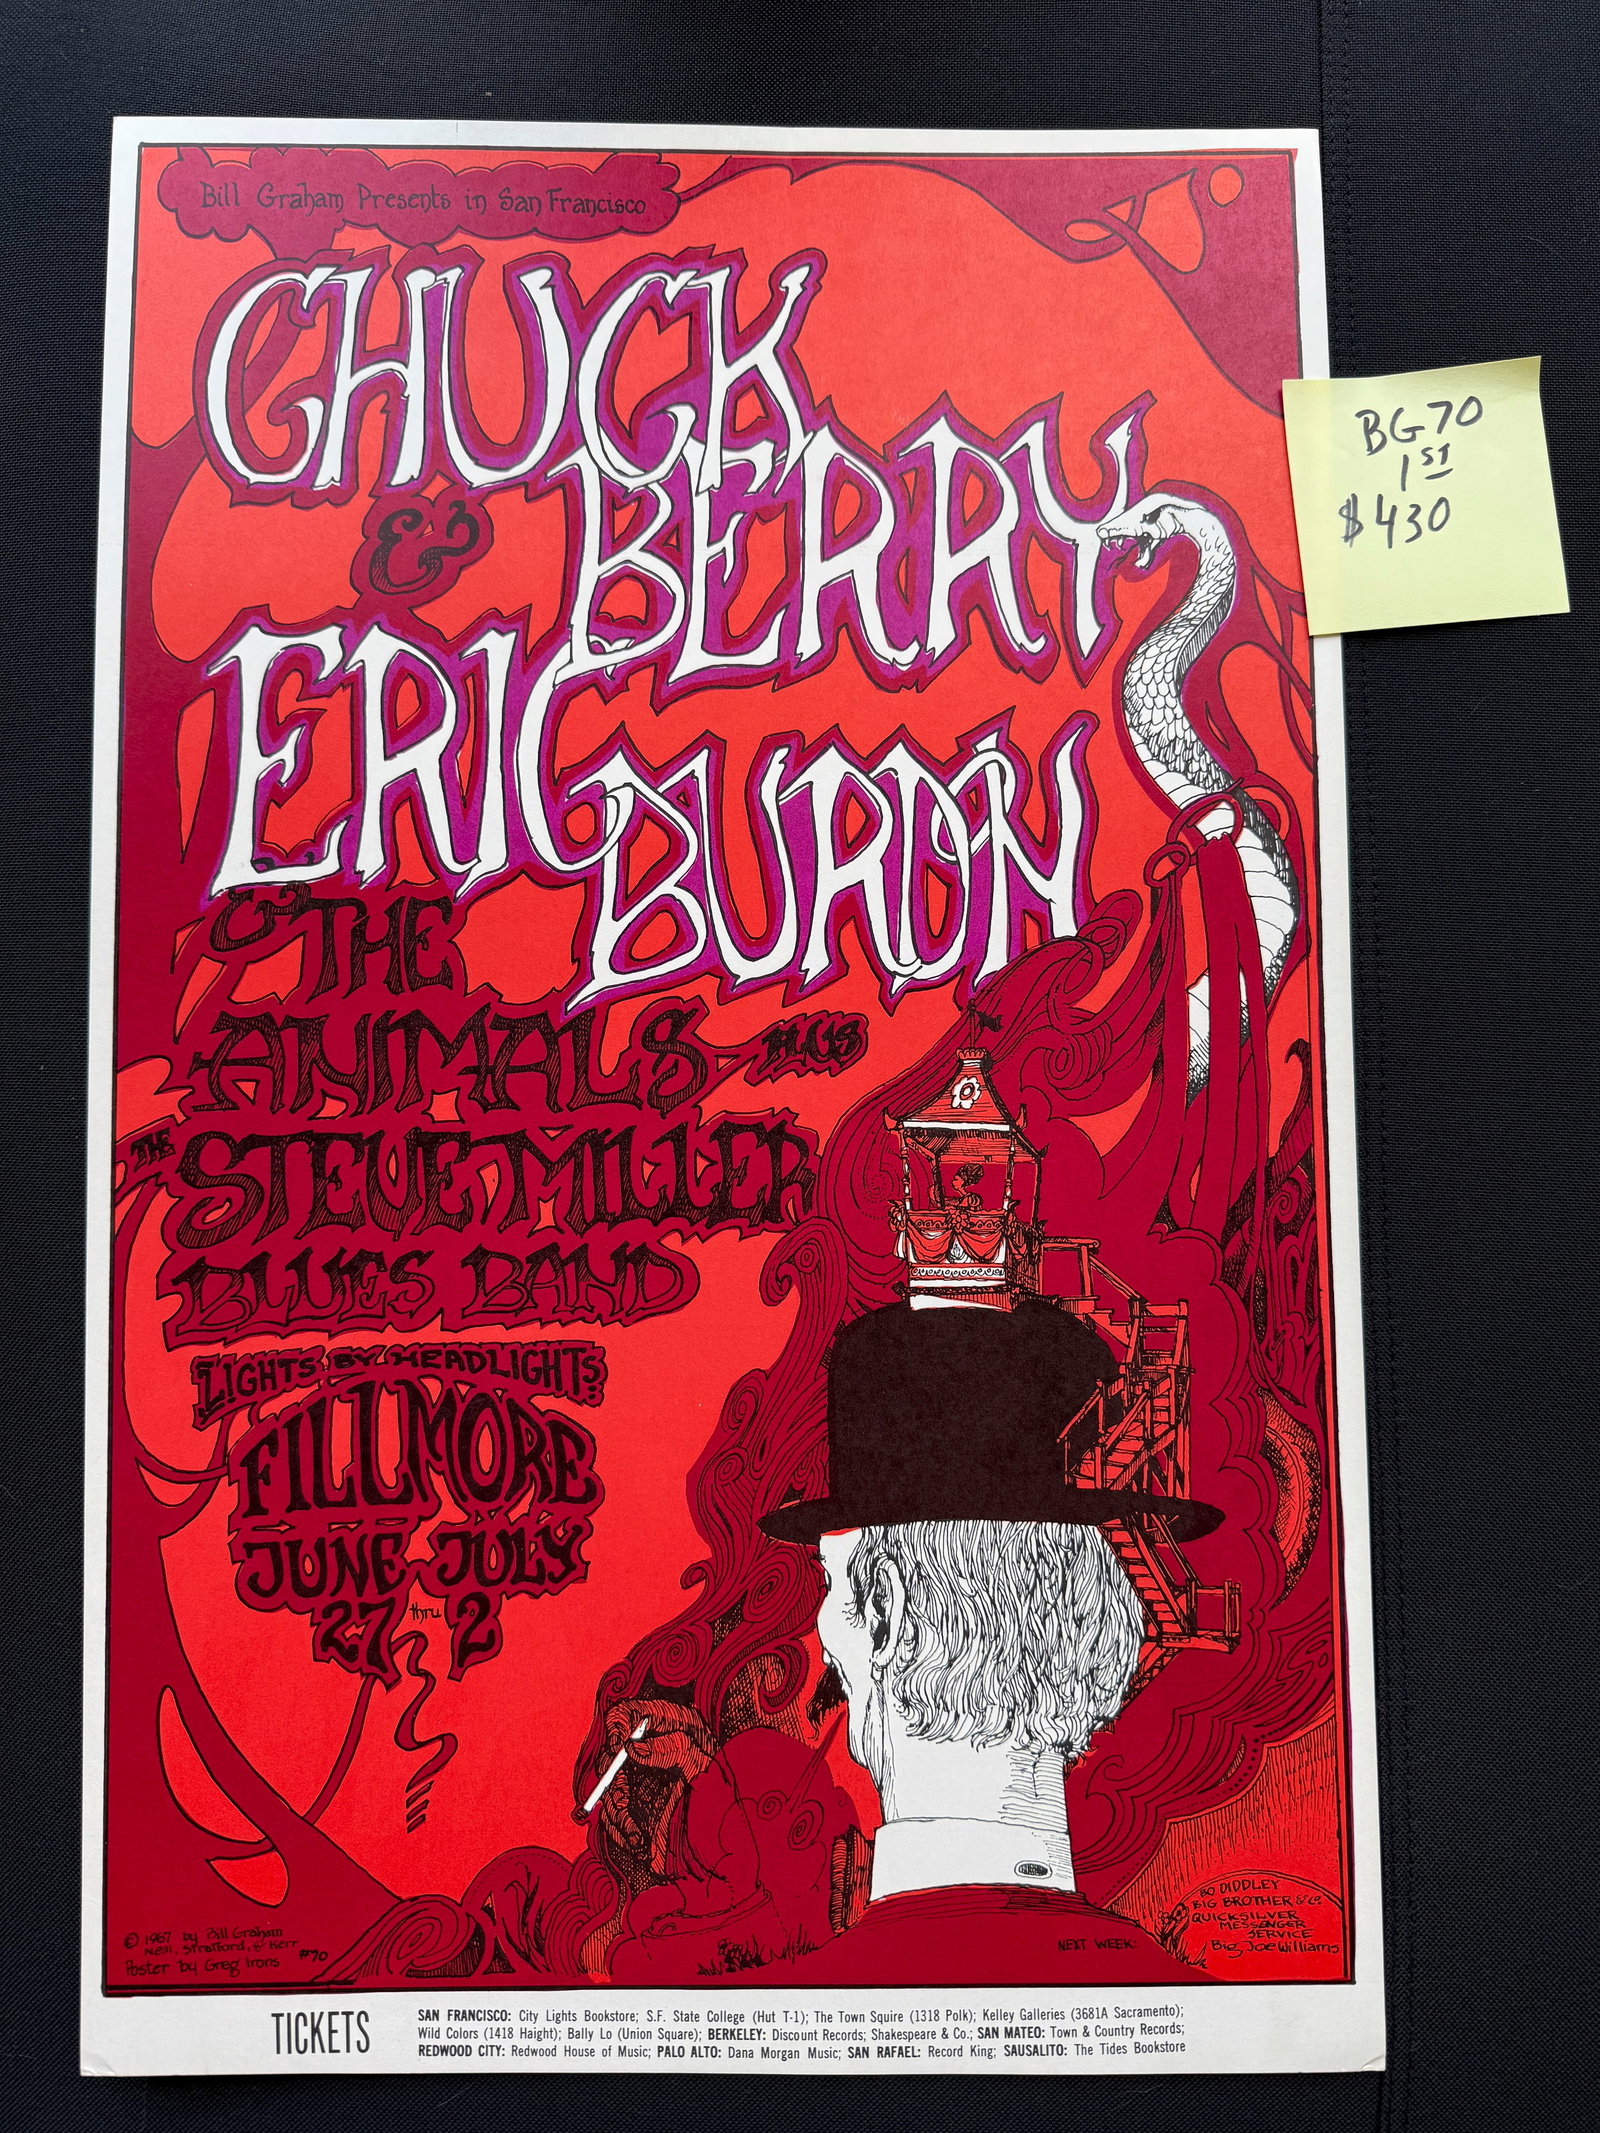 Bill Graham Presents in San Francisco
CHUCK
BERRY
&
ERIC
BURDN
& THE
ANIMALS PLUS
THE STEVE MILLER
BLUES BAND
LIGHTS BY HEADLIGHTS
FILLMORE
JUNE JULY
27 thru 2
BG70
1ST
$430
© 1967 by Bill Graham
Neal, Stratford, & Kerr
Poster by Greg Irons #70
NEXT WEEK:
BO DIDDLEY
BIG BROTHER & Co.
QUICKSILVER
MESSENGER
SERVICE
Big Joe Williams
TICKETS
SAN FRANCISCO: City Lights Bookstore; S.F. State College (Hut T-1); The Town Squire (1318 Polk); Kelley Galleries (3681A Sacramento);
Wild Colors (1418 Haight); Bally Lo (Union Square); BERKELEY: Discount Records; Shakespeare & Co.; SAN MATEO: Town & Country Records;
REDWOOD CITY: Redwood House of Music; PALO ALTO: Dana Morgan Music; SAN RAFAEL: Record King; SAUSALITO: The Tides Bookstore